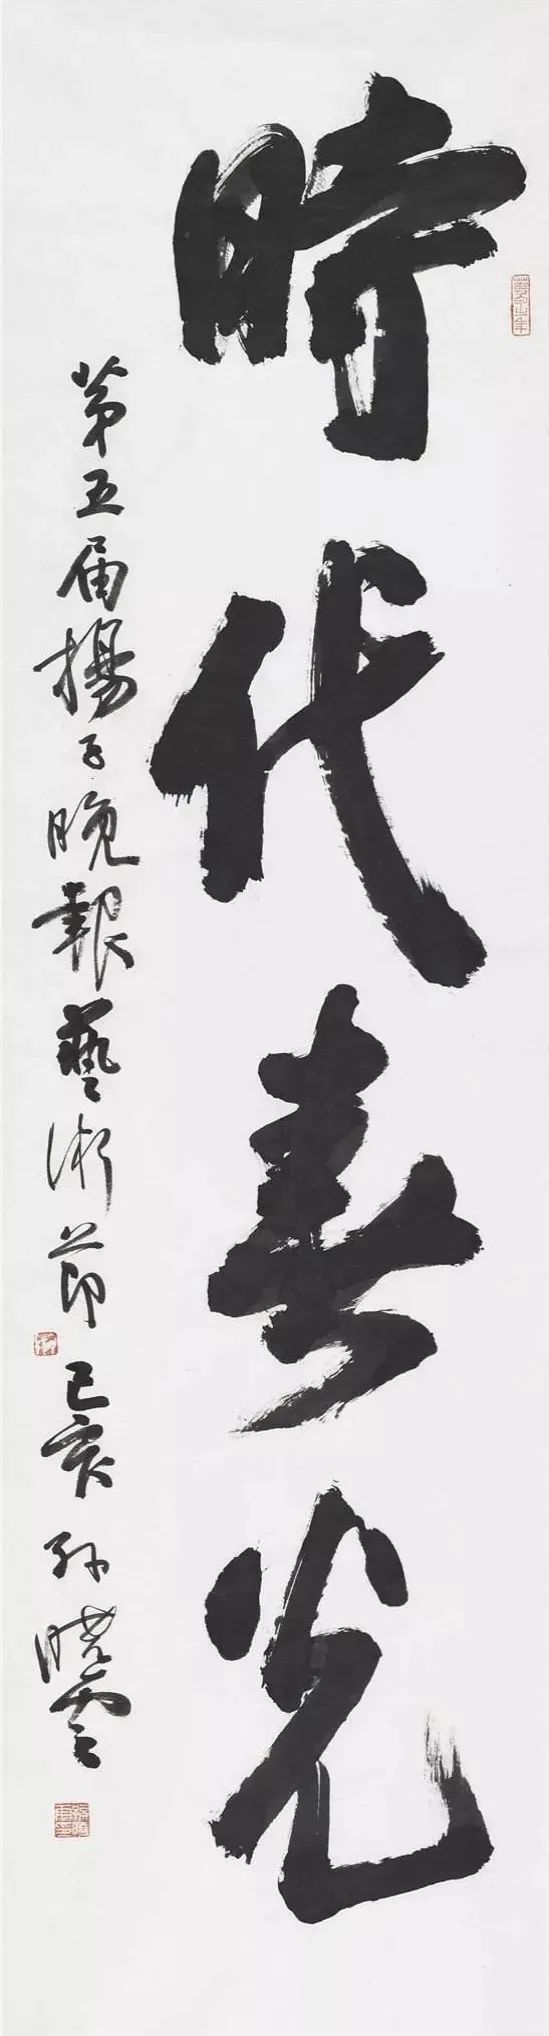 時代春光
第五届揚子晚報藝術節
己亥 孫曉雲